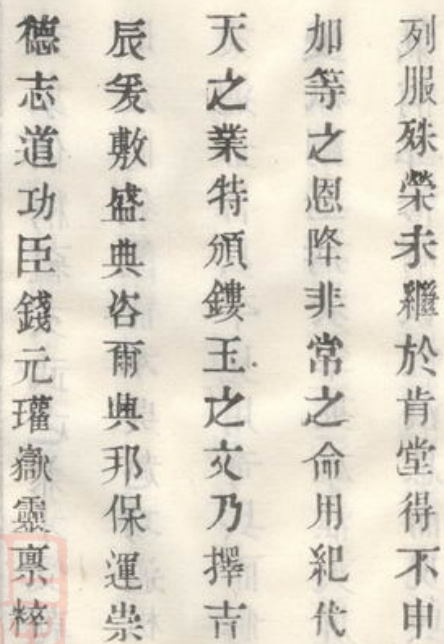 列服殊榮未繼於肯堂得不申
加等之恩降非常之命用紀代
天之業特頒鏤玉之文乃擇吉
辰爰敷盛典咨爾興邦保運崇
德志道功臣錢元瓘嶽靈禀粹